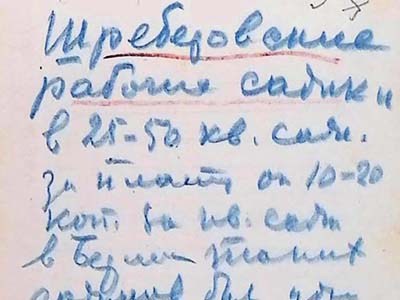 Шреберовские
рабочие садики
в 25-50 кв. саж.
за плату от 10-20
коп. за кв. саж
в таких
садиков